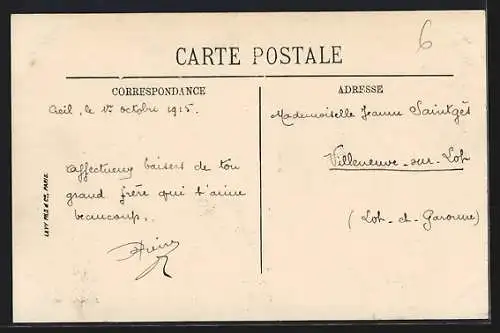 6
CARTE POSTALE
CORRESPONDANCE
Creil, le 1er octobre 1915.
Affectueux baisers de ton
grand frère qui t'aime
beaucoup.
LEVY FILS & Cie, PARIS
ADRESSE
Mademoiselle Jeanne Saintgès
Villeneuve-sur-Lot
(Lot-et-Garonne)